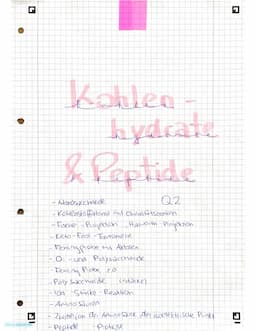 Kohlen-
hydrate
& Peptide
Q2
- Monosaccharide
- Kohlenstoffatome mit Chiralitätszentren
- Fischer-Projektion, Haworth-Projektion
- Keto-Enol-Tautomerie
- Fehlingprobe mit Aldosen
- Di- und Polysaccharide
- Fehling Probe 2.0
- Polysaccharide (Stärke)
- Iod-Stärke-Reaktion
- Aminosäuren
- der Aminosäure, der isoelektrische Punkt
- Peptide - Proteine